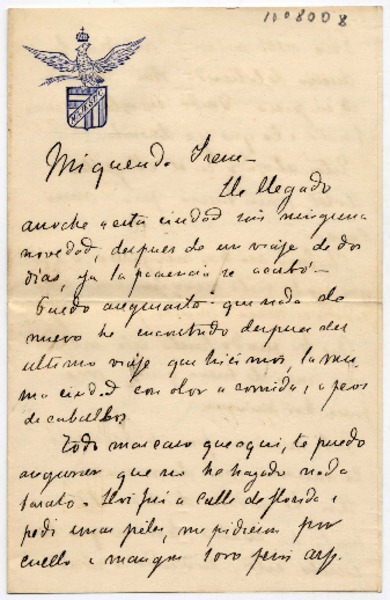 Mi querida Irene -
He llegado
anoche a esta ciudad sin ninguna
novedad, despues de un viaje de dos
dias, ya la paciencia se acabó -
Puedo asegurarte que nada de
nuevo he encontrado despues del
ultimo viaje que hicimos, la mis
ma ciudad con olor a comida, a
de caballos
Todo mas caro que aqui, te puedo
asegurar que no he hayado nada
barato - Hoi fui a calle de florida i
pedi unas pieles, me pidieron por
cuello i mangas 1000 pesos arj.